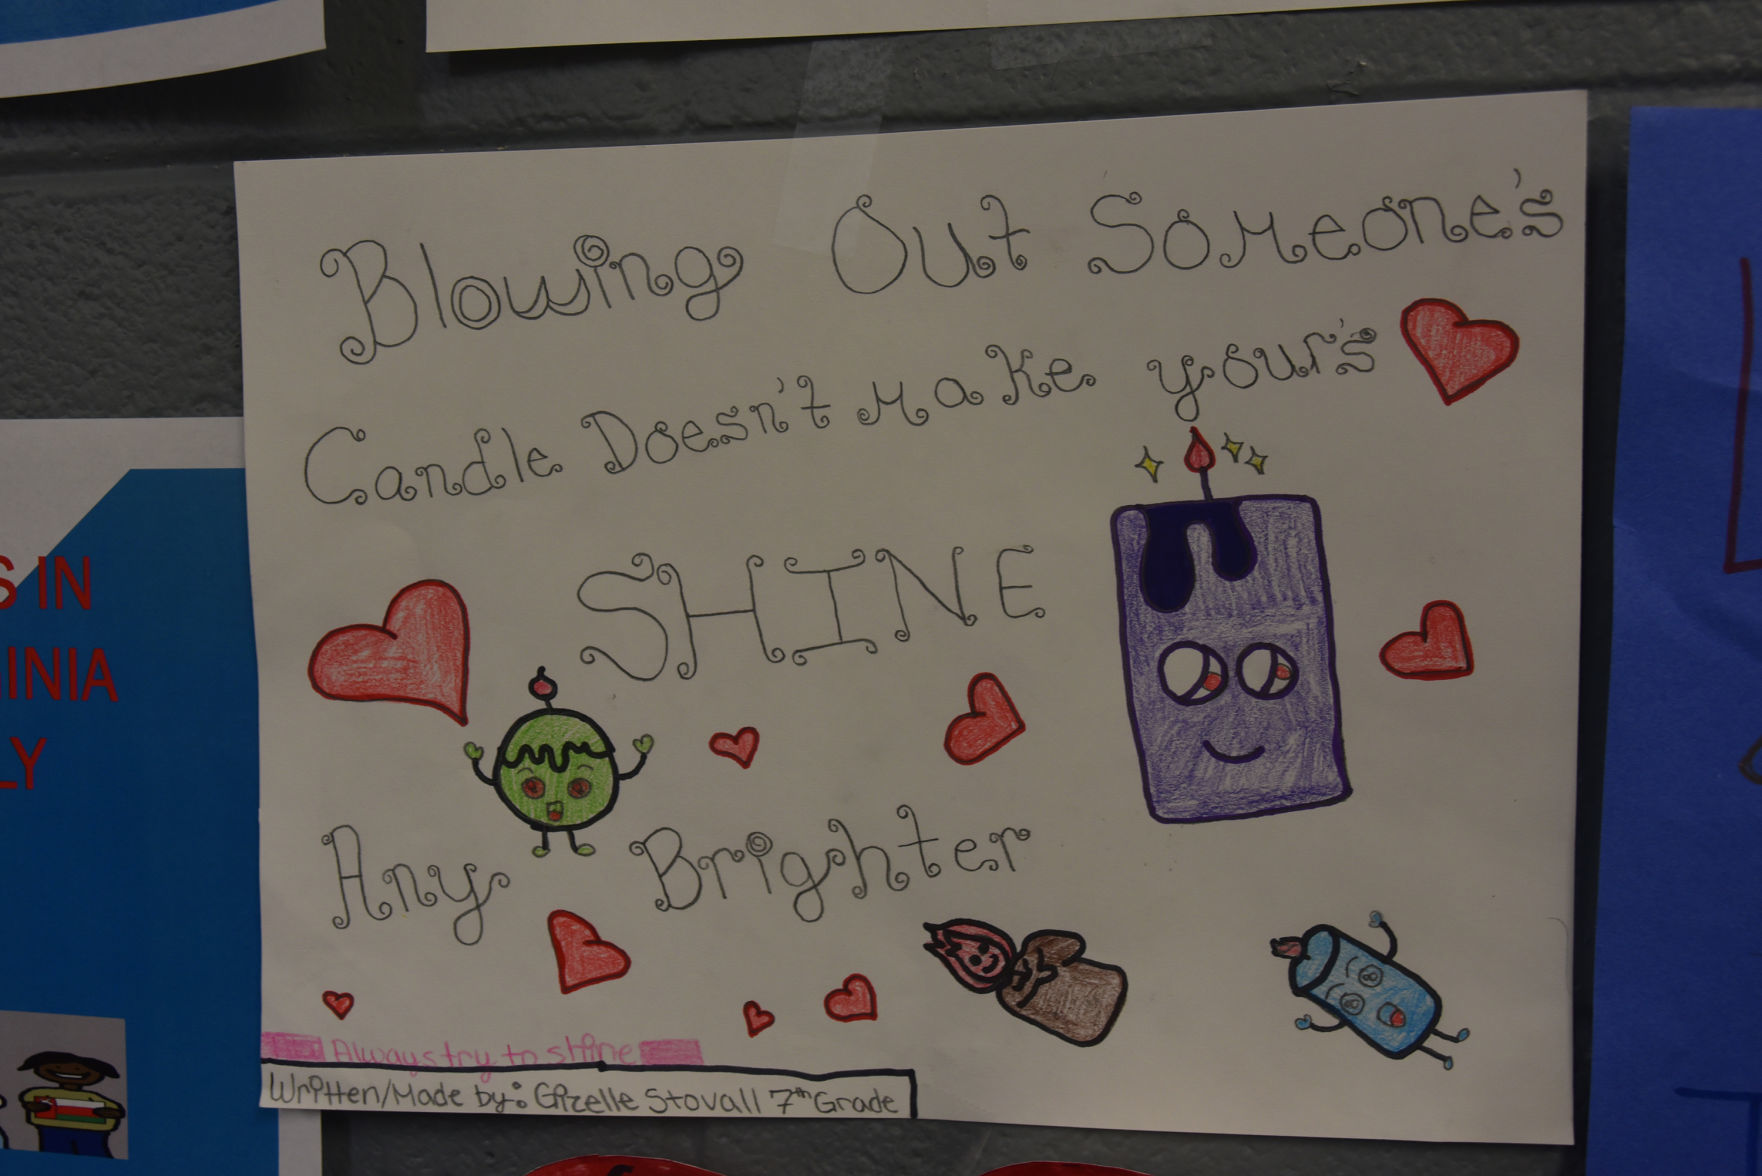 Blowing Out Someone's
Candle Doesn't Make your's
SHINE
Any Brighter
Always try to shine
Written/Made by: Gizelle Stovall 7th Grade
S IN
INIA
LY